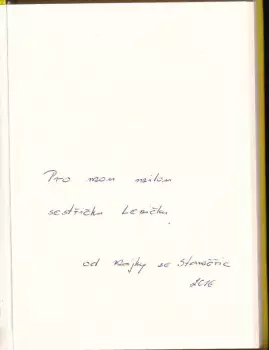 Pro mou milou
sestřičku Leničku
od Majky ze Staměřic
2016